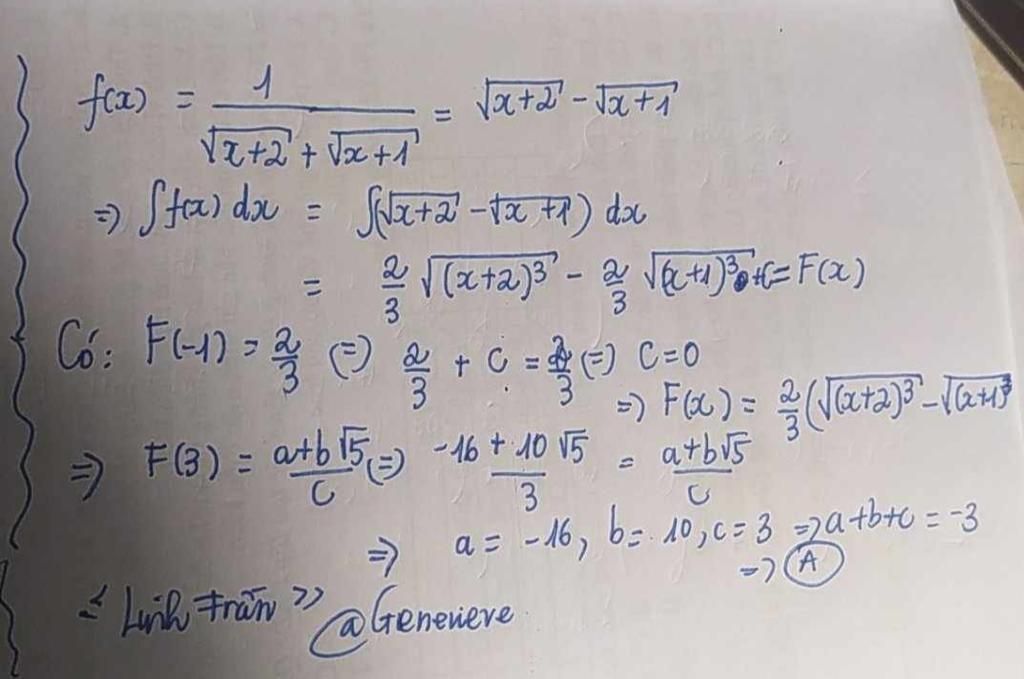 f(x) = 1/(√(x+2) + √(x+1)) = √(x+2) - √(x+1)
=> ∫f(x) dx = ∫(√(x+2) - √(x+1)) dx
= 2/3 √((x+2)³) - 2/3 √((x+1)³) + C = F(x)
Có: F(-1) = 2/3 (=) 2/3 + C = 2/3 (=) C = 0
=> F(x) = 2/3 (√((x+2)³) - √((x+1)³
=> F(3) = (a+b√5)/C (=) (-16 + 10√5)/3 = (a+b√5)/C
=> a = -16, b = 10, c = 3 => a+b+c = -3
=> A
<< Linh Trần >> @Genevieve